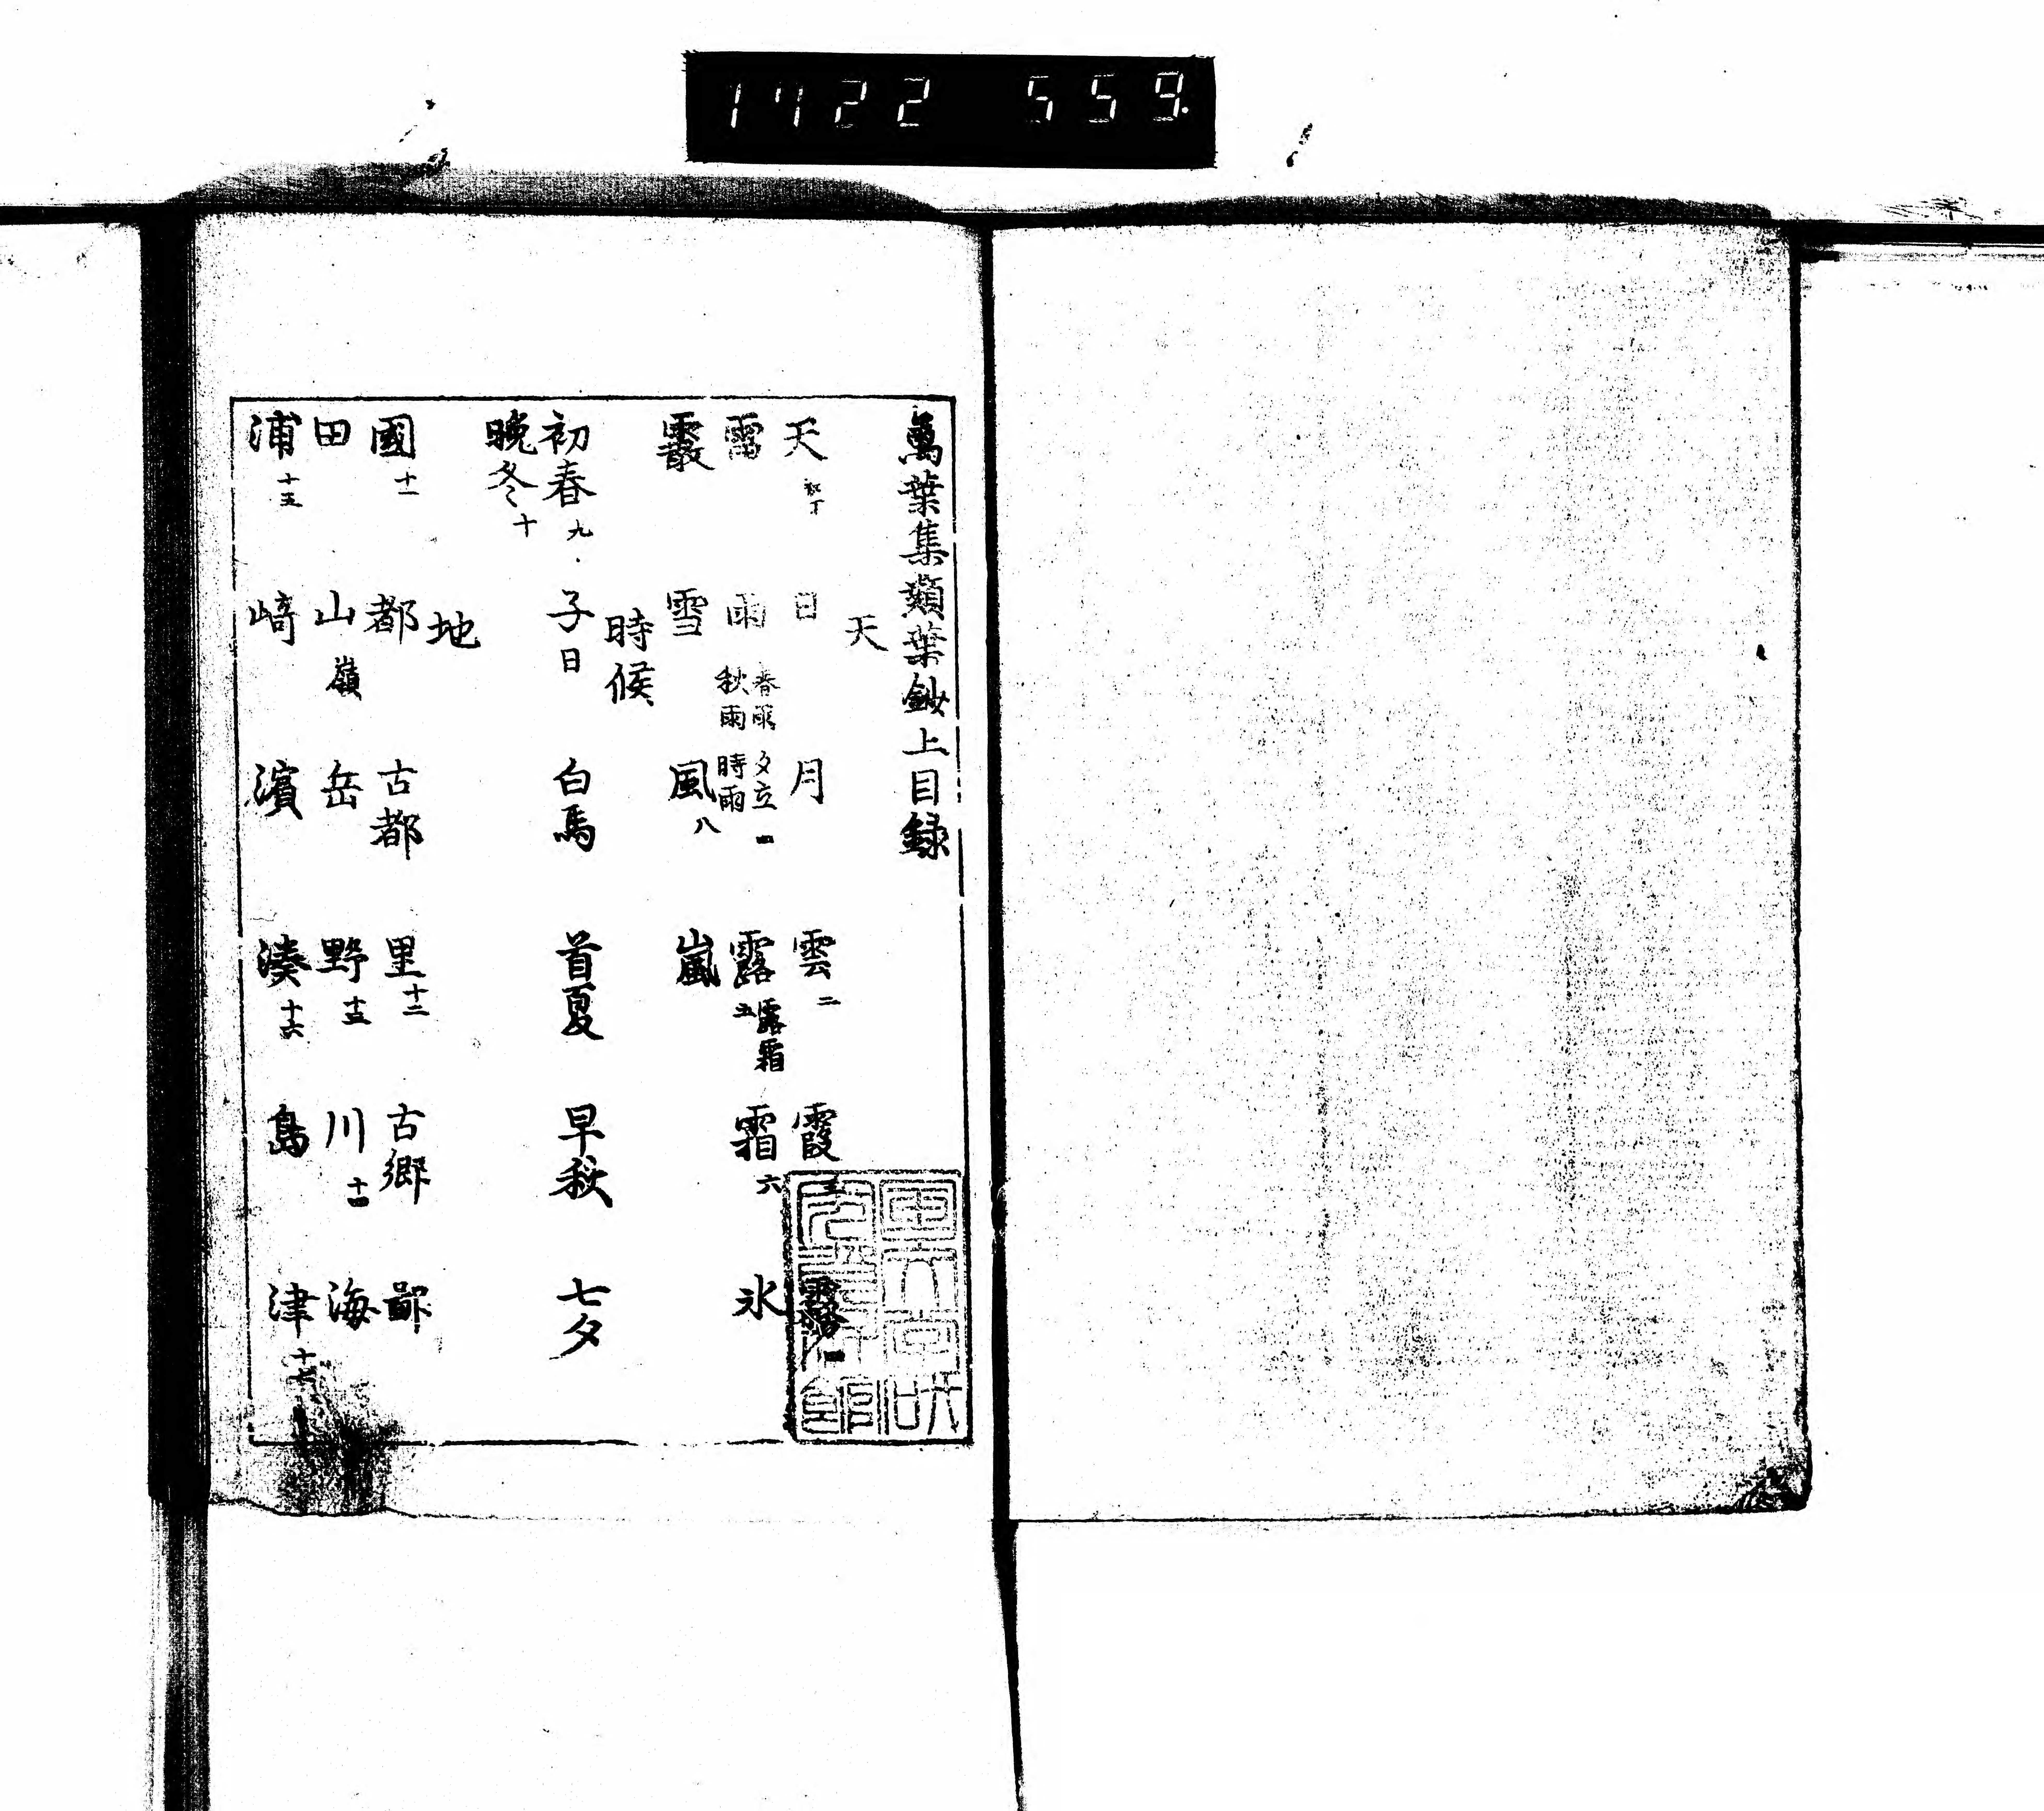 1722 559.
萬葉集類葉鈔上目録
天
天 日 月 雲二 霞 霧
雷 雨 春雨 夕立四 秋雨 時雨 露 露霜五 霜六 氷
霰 雪 風八 嵐
時候
初春九 子日 白馬 首夏 早秋 七夕
晩冬十
地
國十一 都 古都 里十二 古郷 鄙
田 山嶺 岳 野十三 川十四 海
浦十五 﨑 濱 湊十六 島 津十七